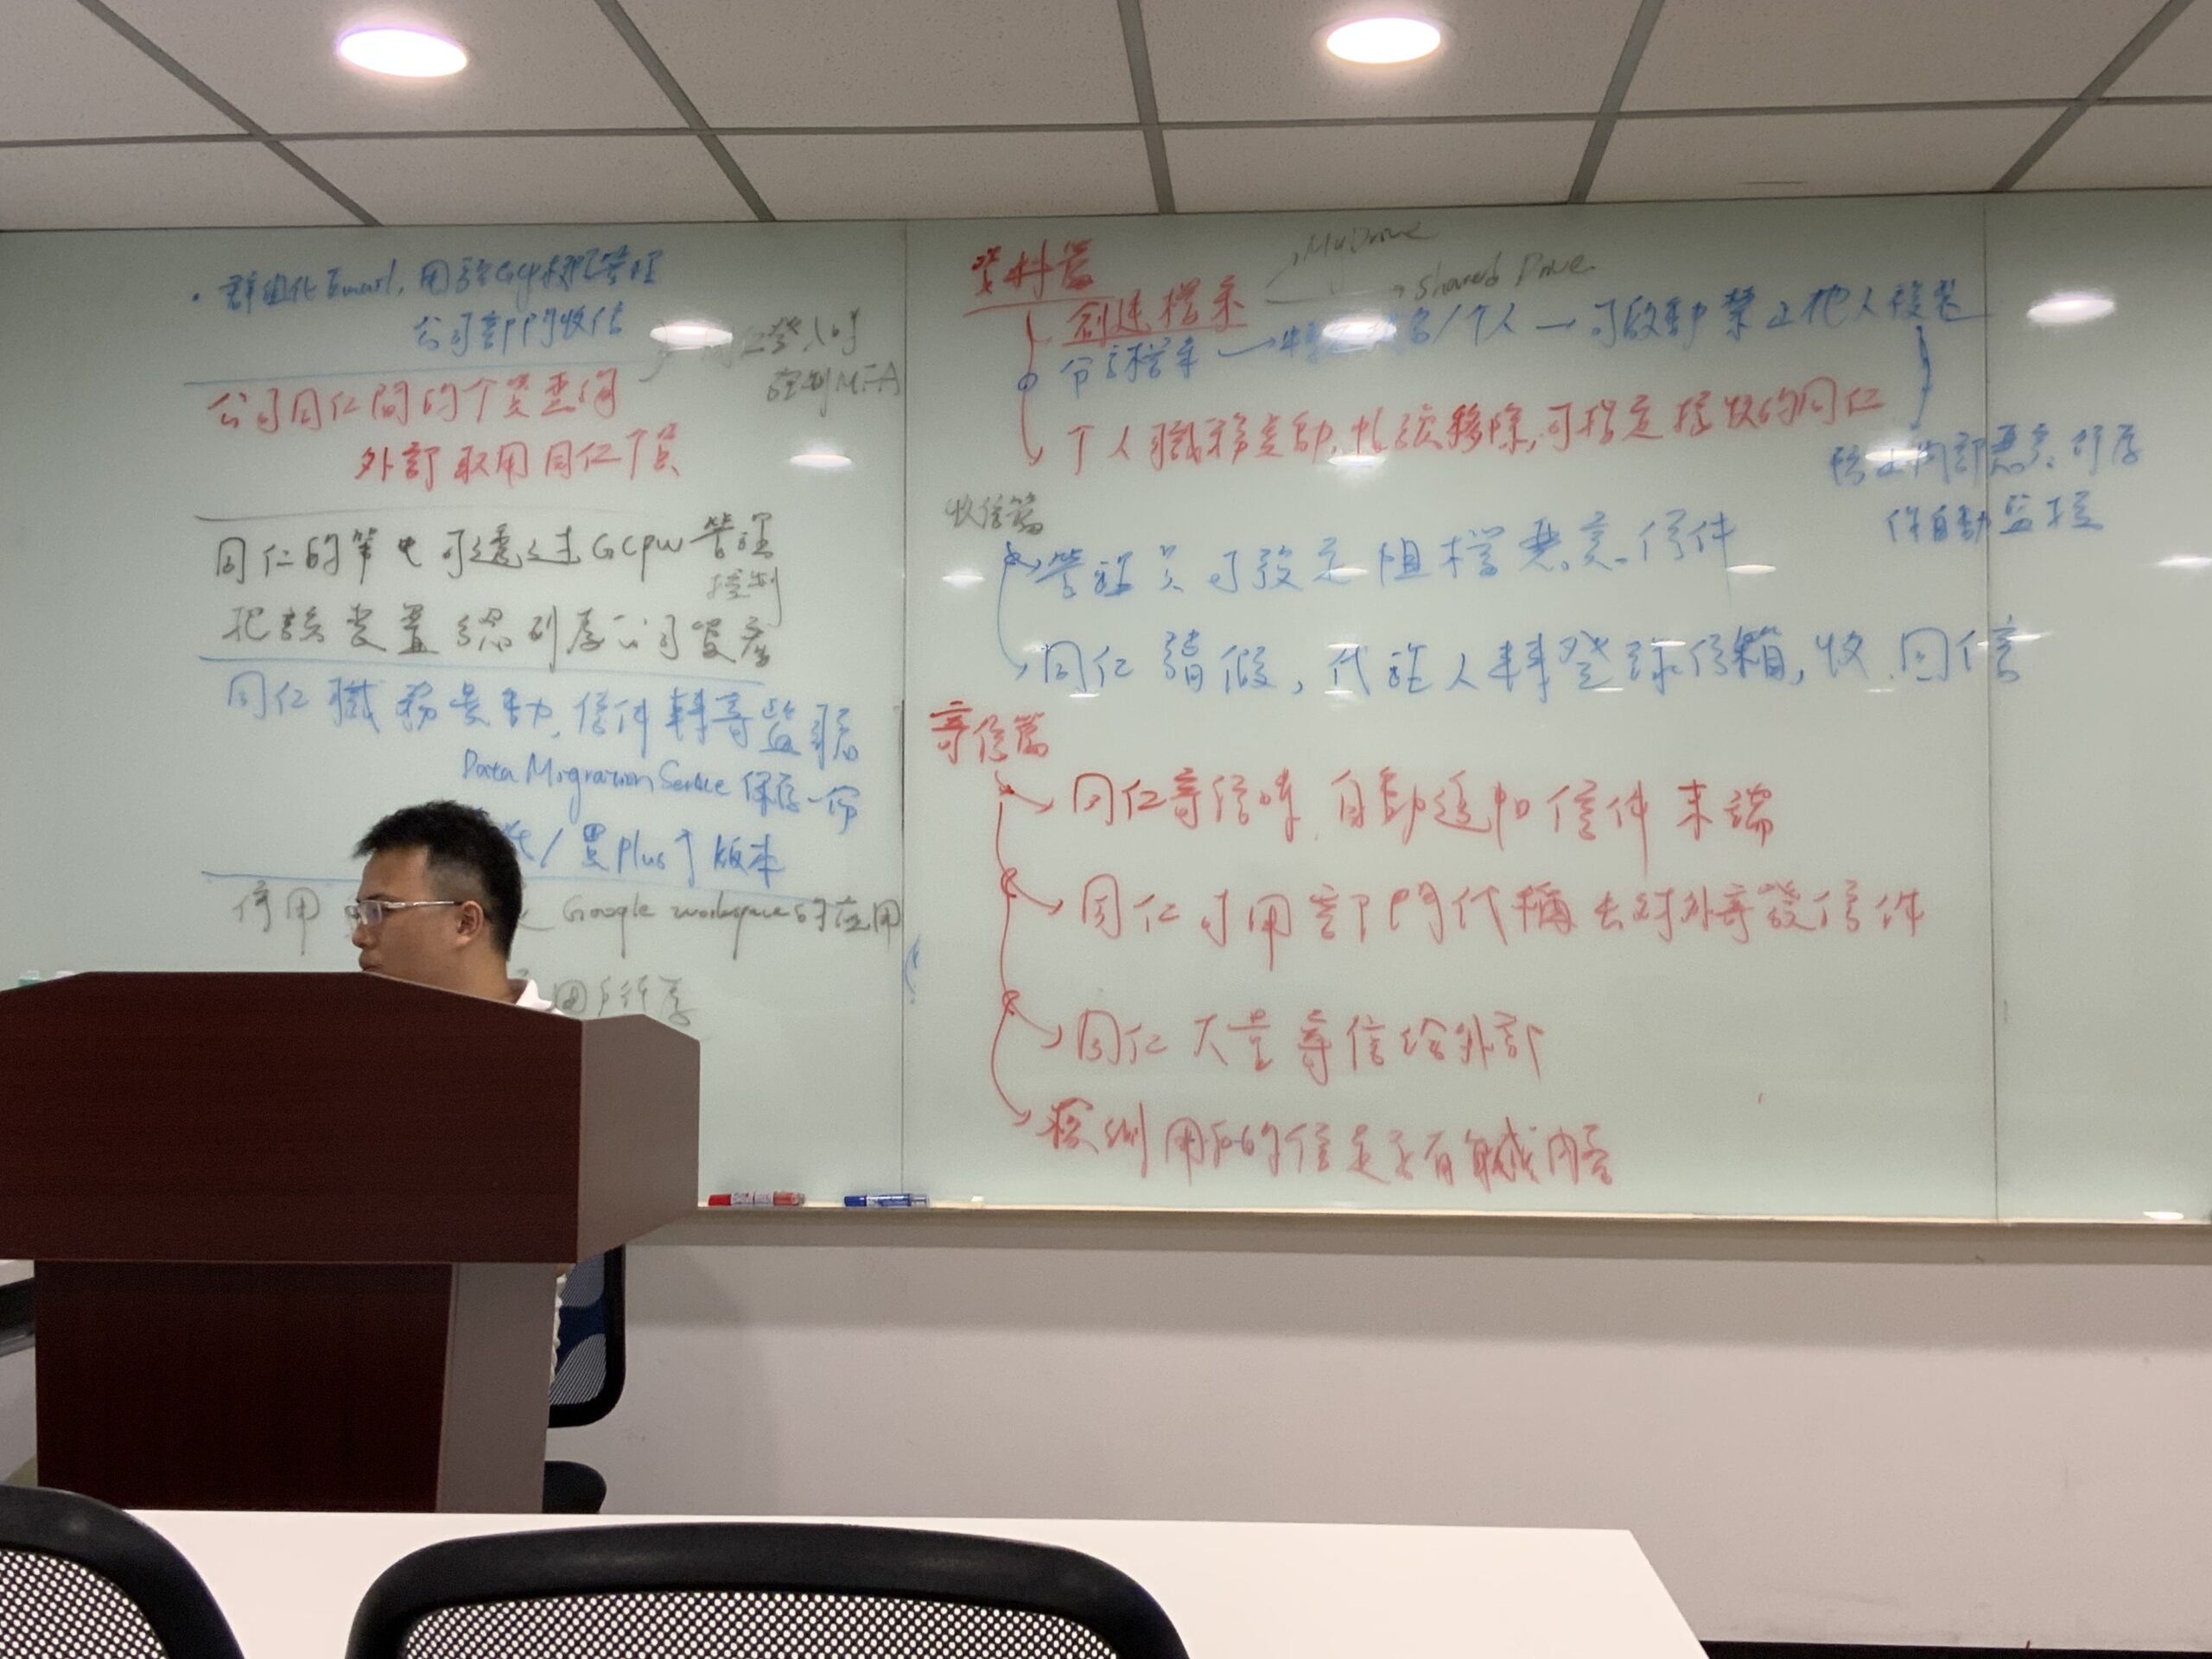 群組化Email,用於Gcp權限管理
公司部門收信
登入時
控制MFA
公司同仁間的个資查詢
外部取用同仁个資
同仁的筆电可透过GCPW管理
控制
把該裝置認列為公司資產
同仁職務異動,信件轉寄監聽
Data Migration Service 保存一份
/買Plus↑版本
停用
Google workspace的应用
資料篇
My Drive
Shared Drive
創建檔案
分享檔案
/个人→可啟動禁止他人複製
个人職務異動,帳號移除,可指定接收的同仁
防止內部惡意行為
作自動監控
收信篇
管理員可設定阻擋惡意信件
同仁請假,代理人幫登錄信箱,收.回信
寄信篇
同仁寄信時,自動追加信件末端
同仁可用部門代稱去对外寄發信件
同仁大量寄信給外部
探測用戶的信是否有敏感內容